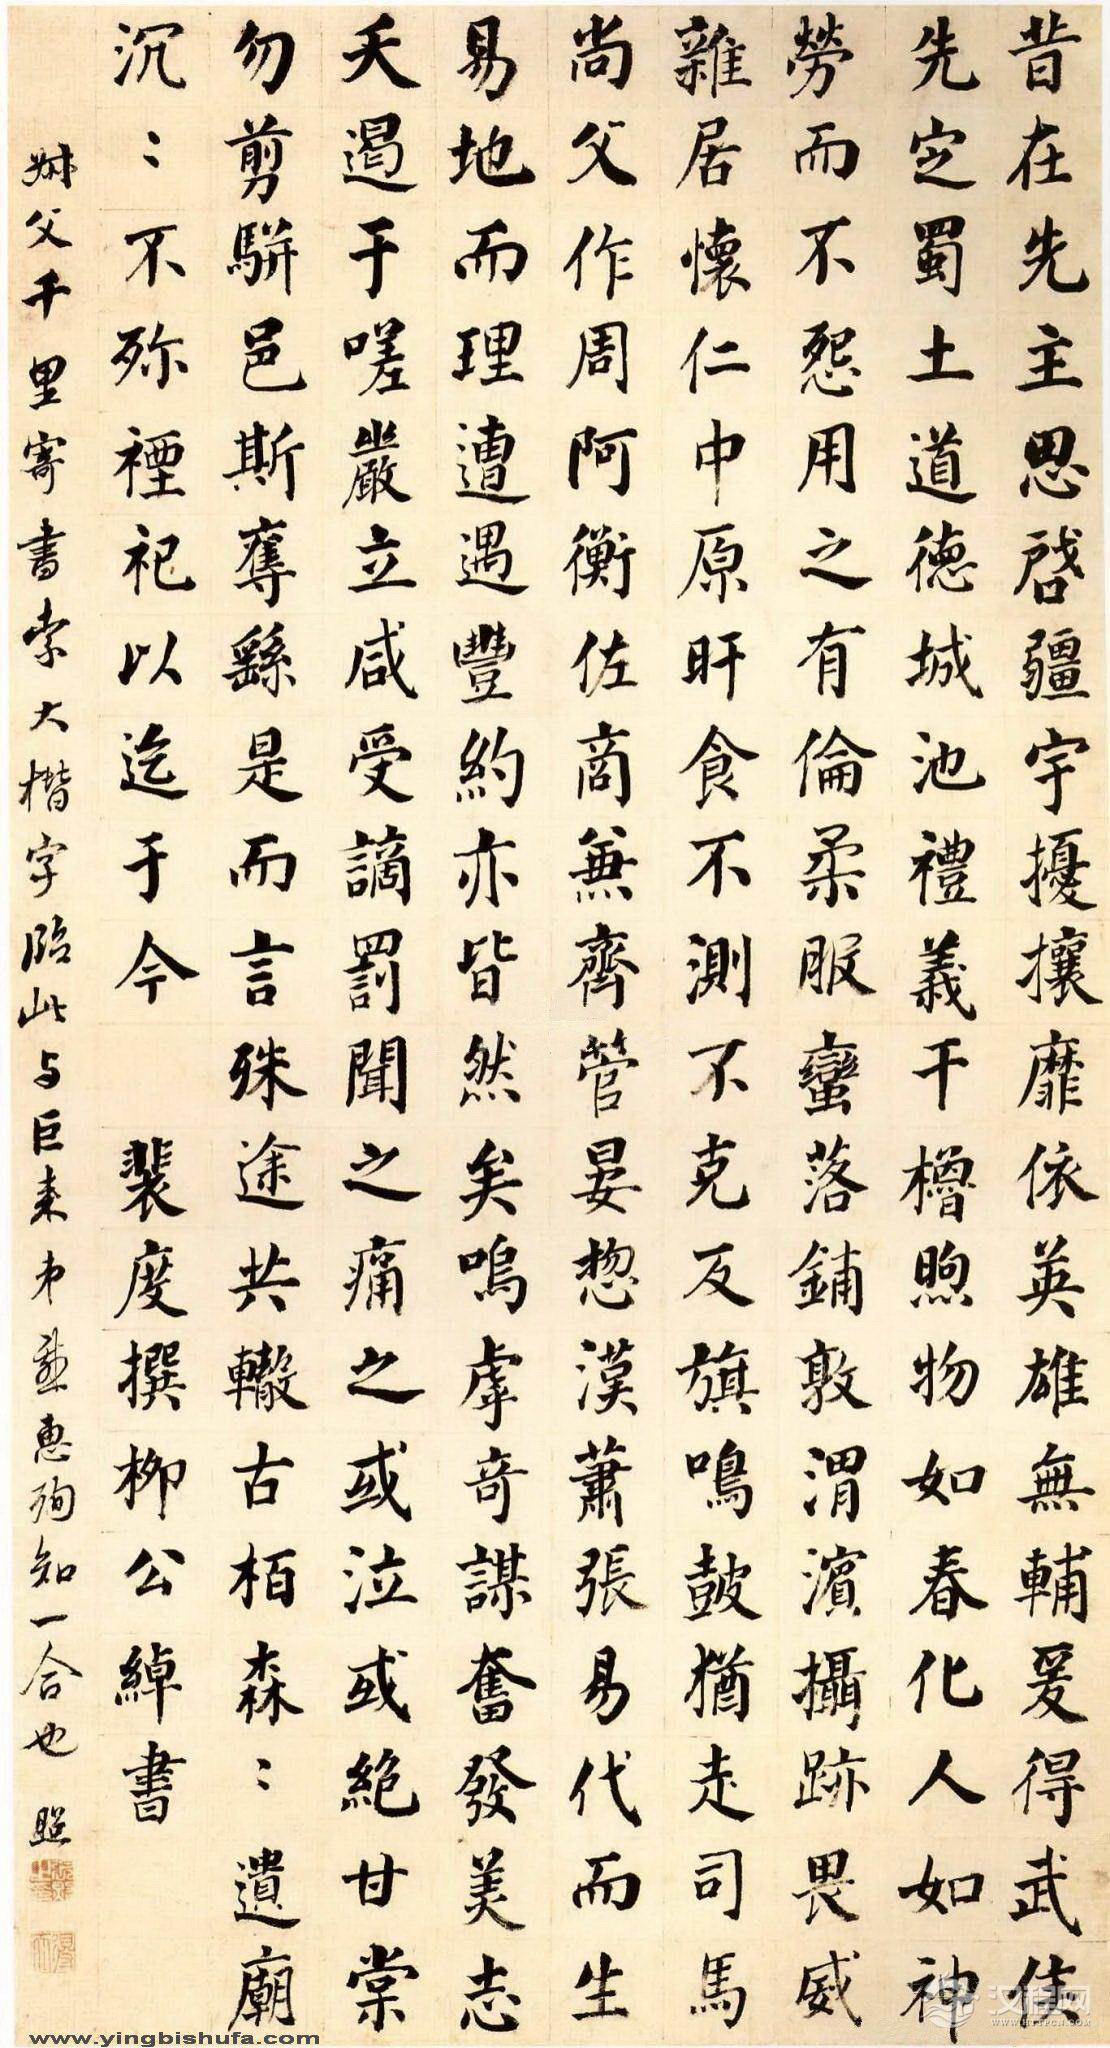 昔在先主思啓疆宇擾攘靡依英雄無輔爰得武侯
先定蜀土道德城池禮義干櫓煦物如春化人如神
勞而不怨用之有倫柔服蠻落鋪敦渭濱攝跡畏威
雜居懷仁中原旰食不測不克反旗鳴鼓猶走司馬
尚父作周阿衡佐商兼齊管晏惣漢蕭張易代而生
易地而理遭遇豐約亦皆然矣嗚虖奇謀奮發美志
夭遏于嗟嚴立咸受謫罰聞之痛之或泣或絕甘棠
勿剪駢邑斯奪繇是而言殊途共轍古柏森〻遺廟
沉〻不殄禋祀以迄于今 裴度撰柳公綽書
叔父千里寄書索大楷字臨此与巨來弟惠殉知一合也 照
www.yingbishufa.com
汉程网
HTTPCN.COM